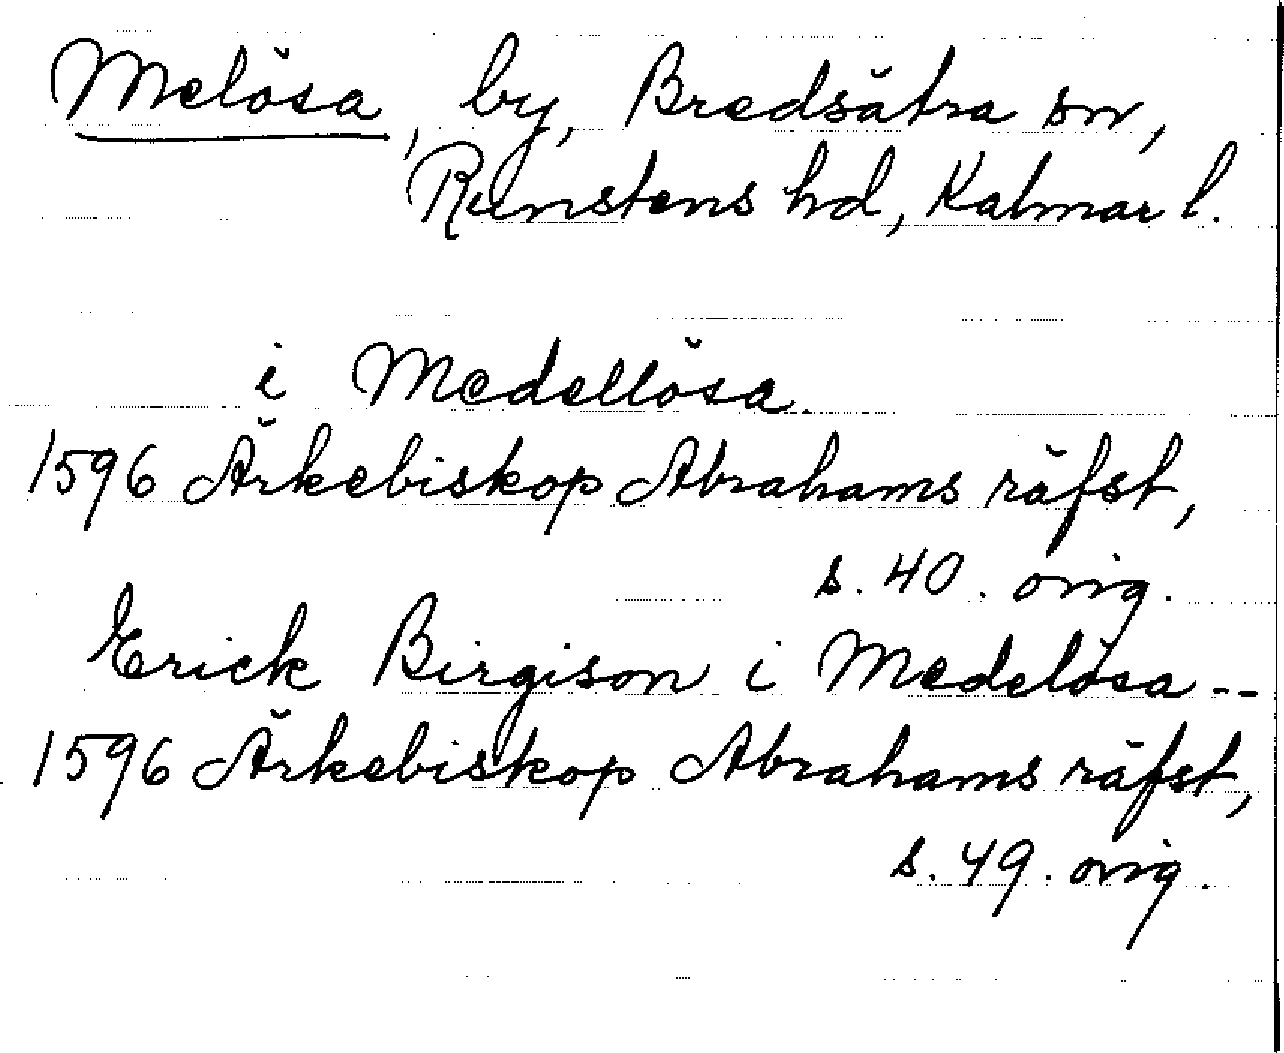 Melösa, by, Bredsätra sn,
Runstens hd, Kalmar l.
i Medellösa.
1596 Ärkebiskop Abrahams räfst,
s. 40. orig.
Erick Birgison i Medelösa --
1596 Ärkebiskop Abrahams räfst,
s. 49. orig.